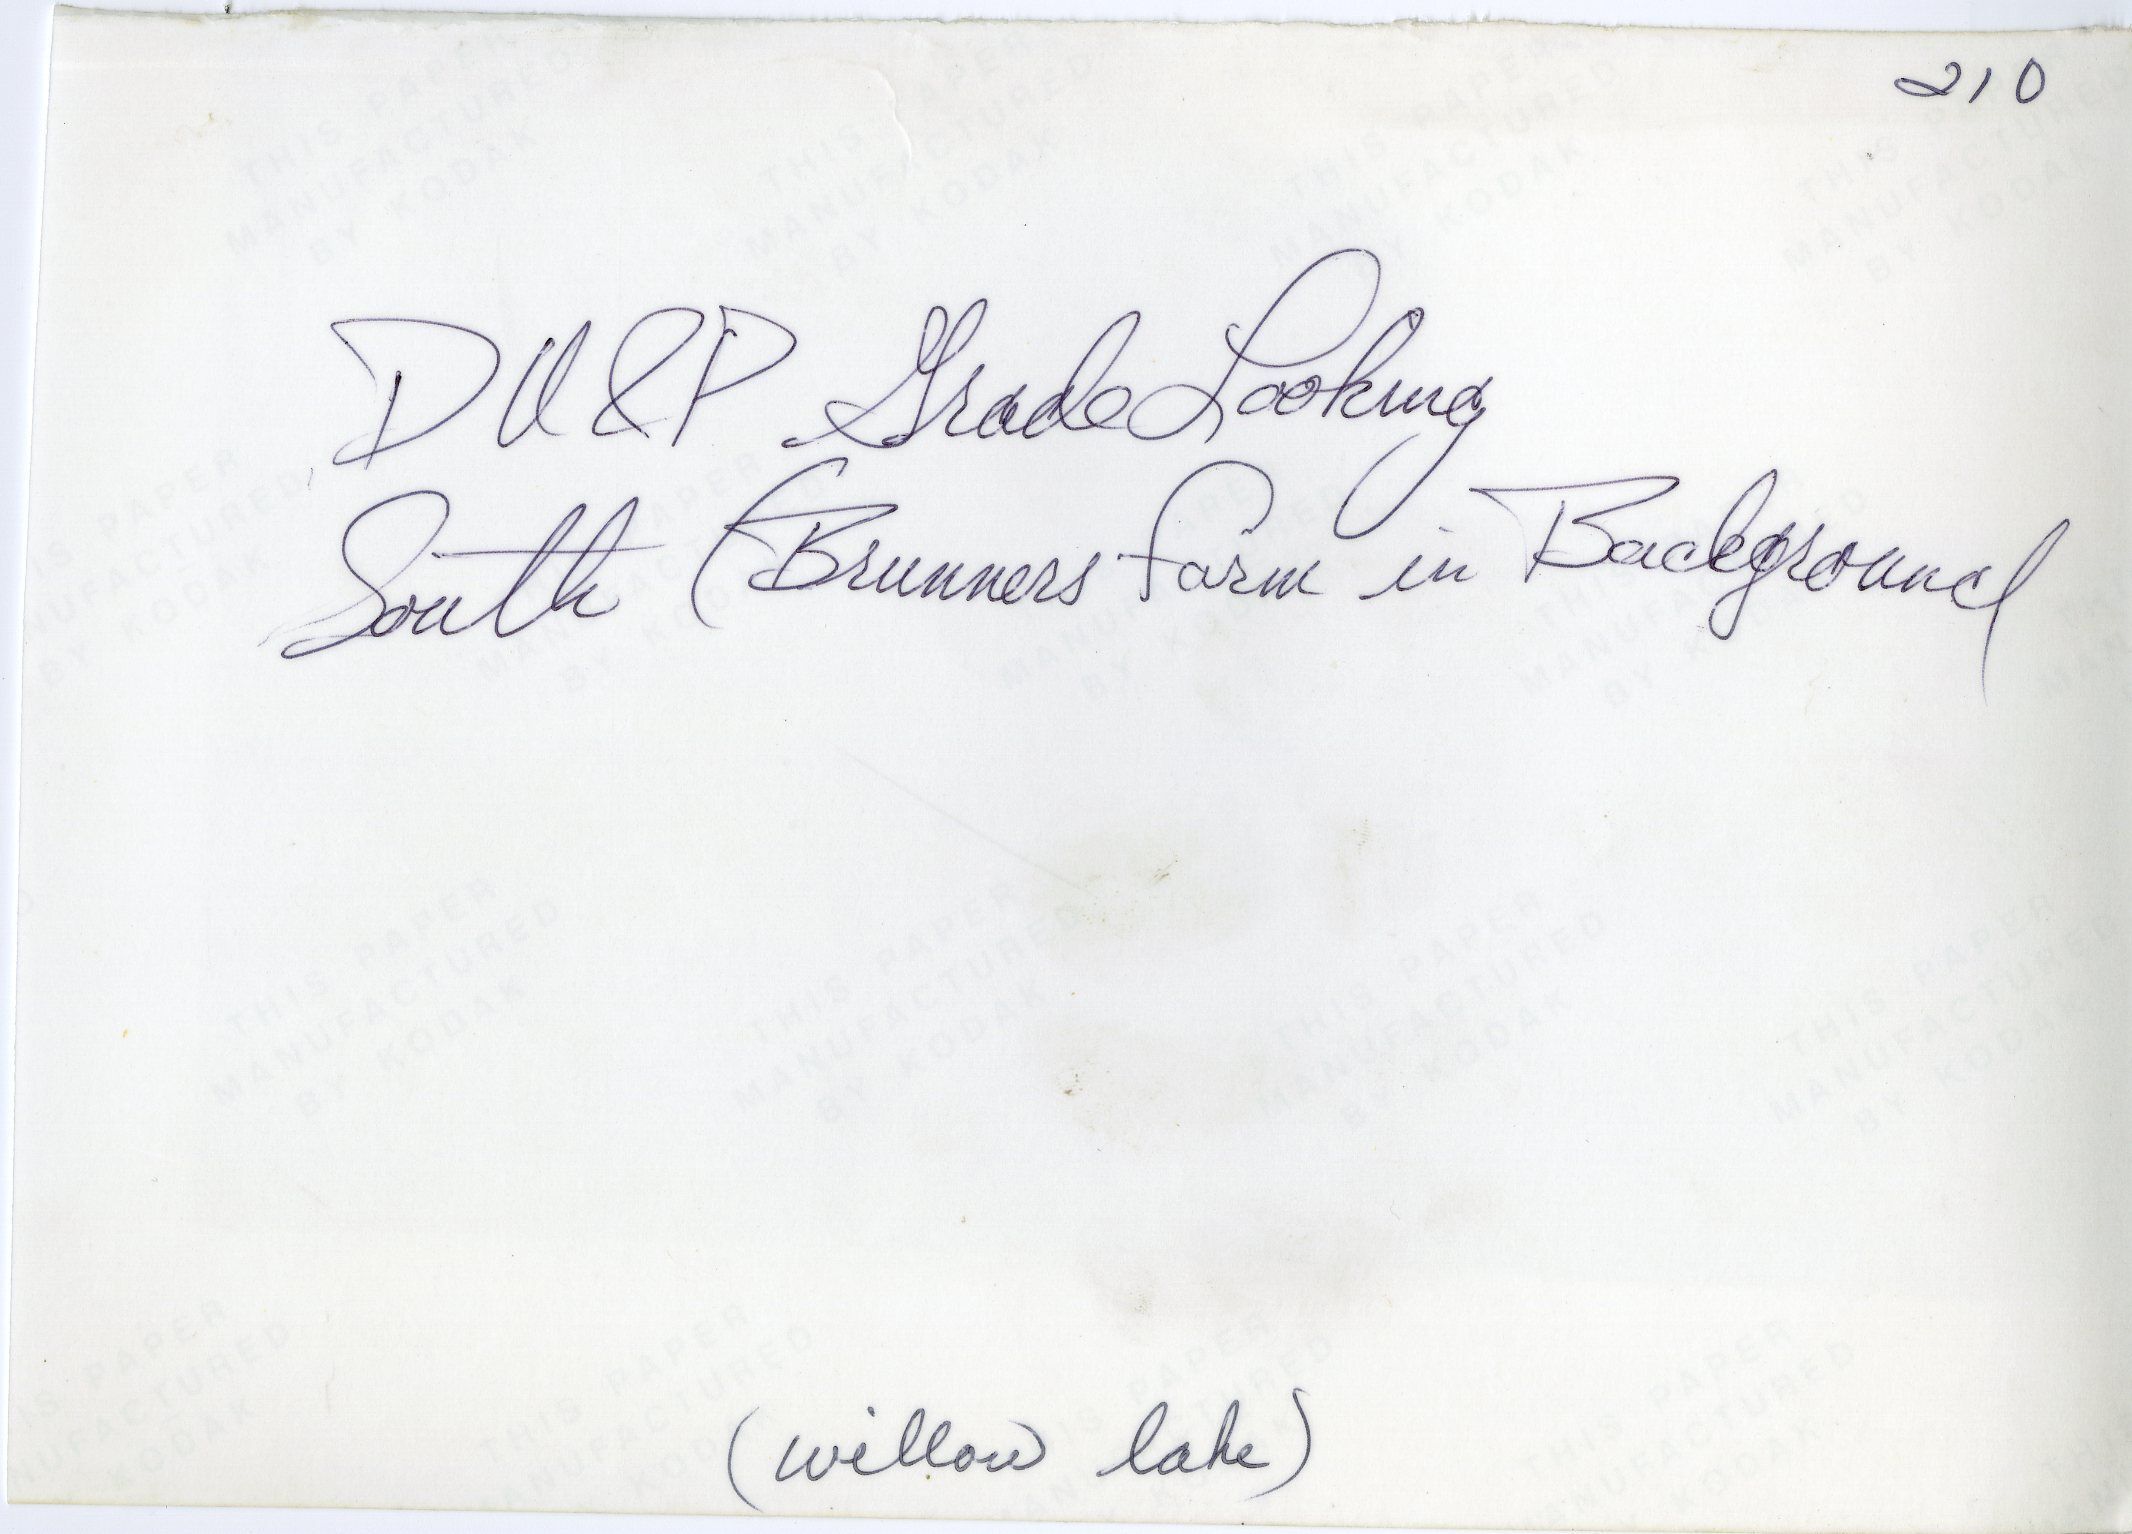 210
DU&P Grade Looking
South (Brunners farm in Background
(willow lake)
THIS PAPER
MANUFACTURED
BY KODAK